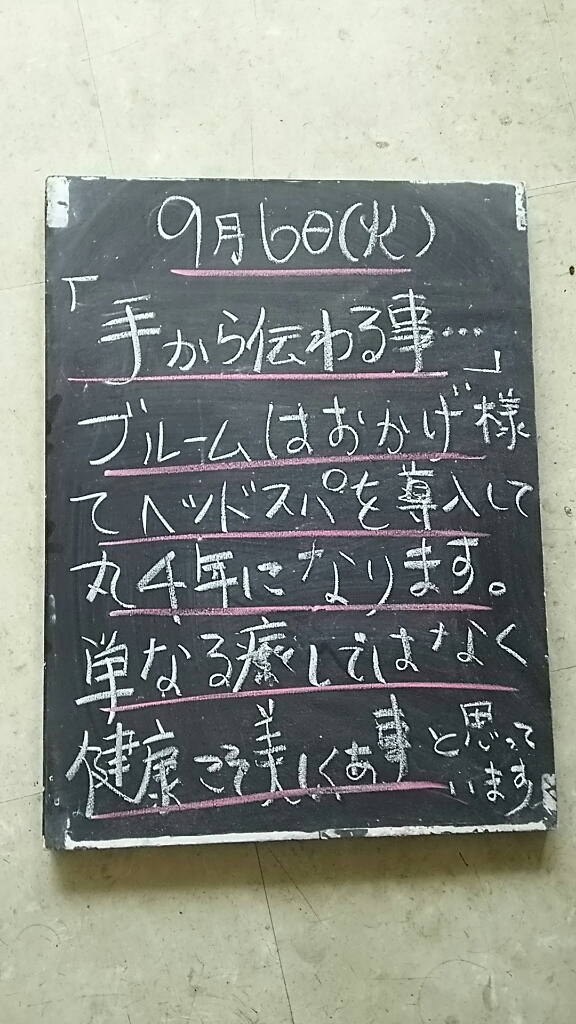 9月6日(火)
「手から伝わる事…」
ブルームはおかげ様
てヘッドスパを導入して
丸4年になります。
単なる癒しではなく
健康こそ美しくあ事と思って
います